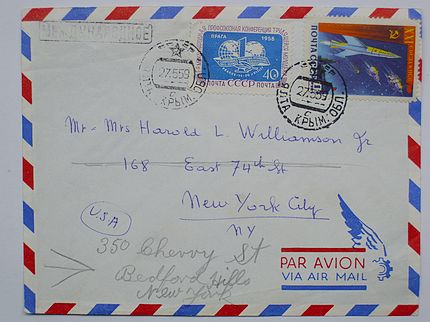 МЕЖДУНАРОДНОЕ
ПРОФСОЮЗНАЯ КОНФЕРЕНЦИЯ
ПРАГА 1958
40
ПОЧТА СССР
ПОЧТА СССР
XXI
ПОЧТА СССР
27559
КРЫМ. ОБЛ.
ЯЛТА
27559
КРЫМ. ОБЛ.
Mr - Mrs Harold L. Williamson Jr
168 East 74th St
New York City
NY
USA
350 Cherry St
Bedford Hills
New York
PAR AVION
VIA AIR MAIL